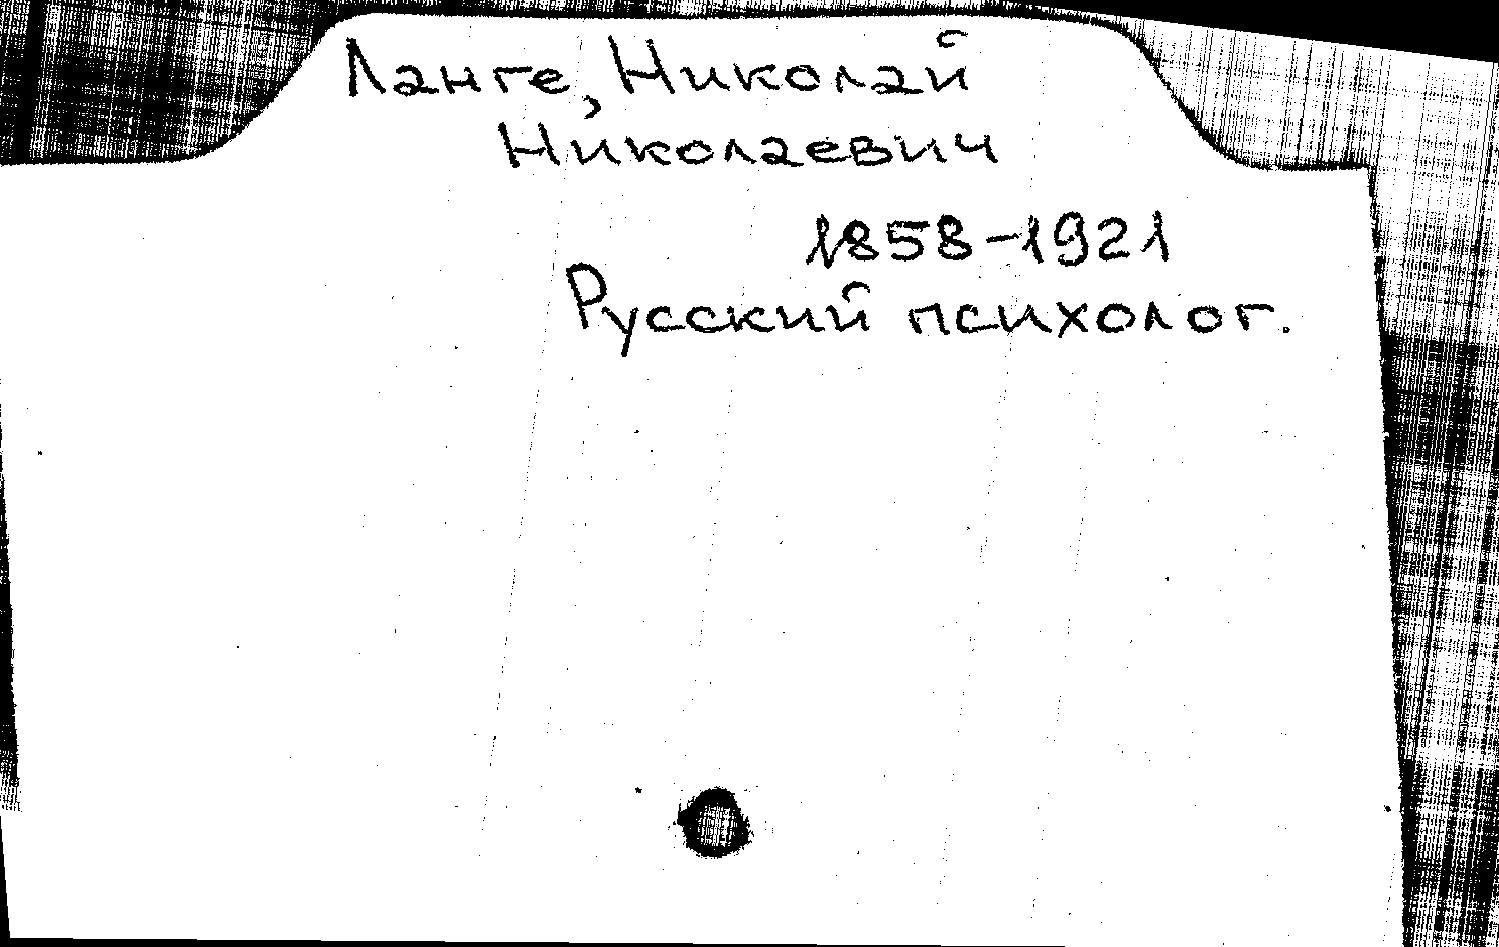 Ланге, Николай
Николаевич
1858-1921
Русский психолог.